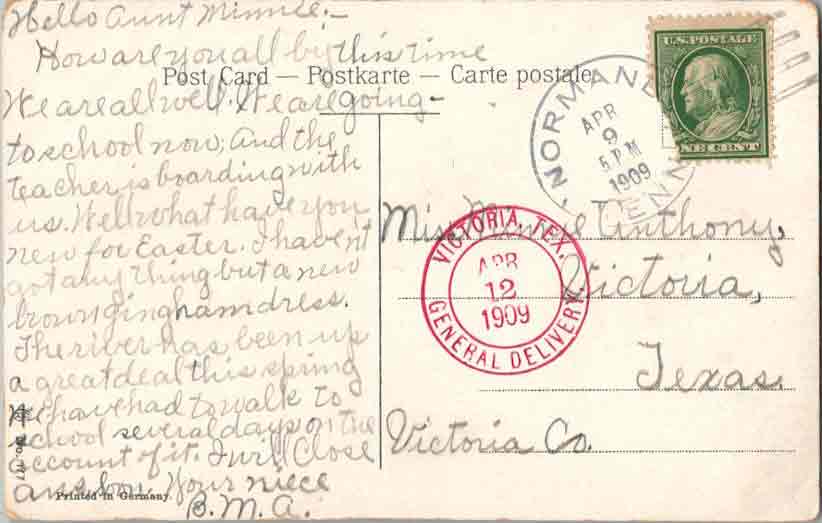 Hello Aunt Minnie;-
How are you all by this time
We are all well. We are going-
to school now; And the
teacher is boarding with
us. Well what have you
new for Easter. I haven't
got any thing but a new
brown gingham dress.
The river has been up
a great deal this spring
We have had to walk to
school several days on the
account of it. I will Close
Your niece
B. M. A.
Post Card — Postkarte — Carte postale.
U.S. POSTAGE
ONE CENT
APR
9
5 PM
1909
TENN
VICTORIA, TEX.
APR
12
1909
GENERAL DELIVERY.
Miss Minnie Anthony,
Victoria,
Texas.
Victoria Co.
Printed in Germany.